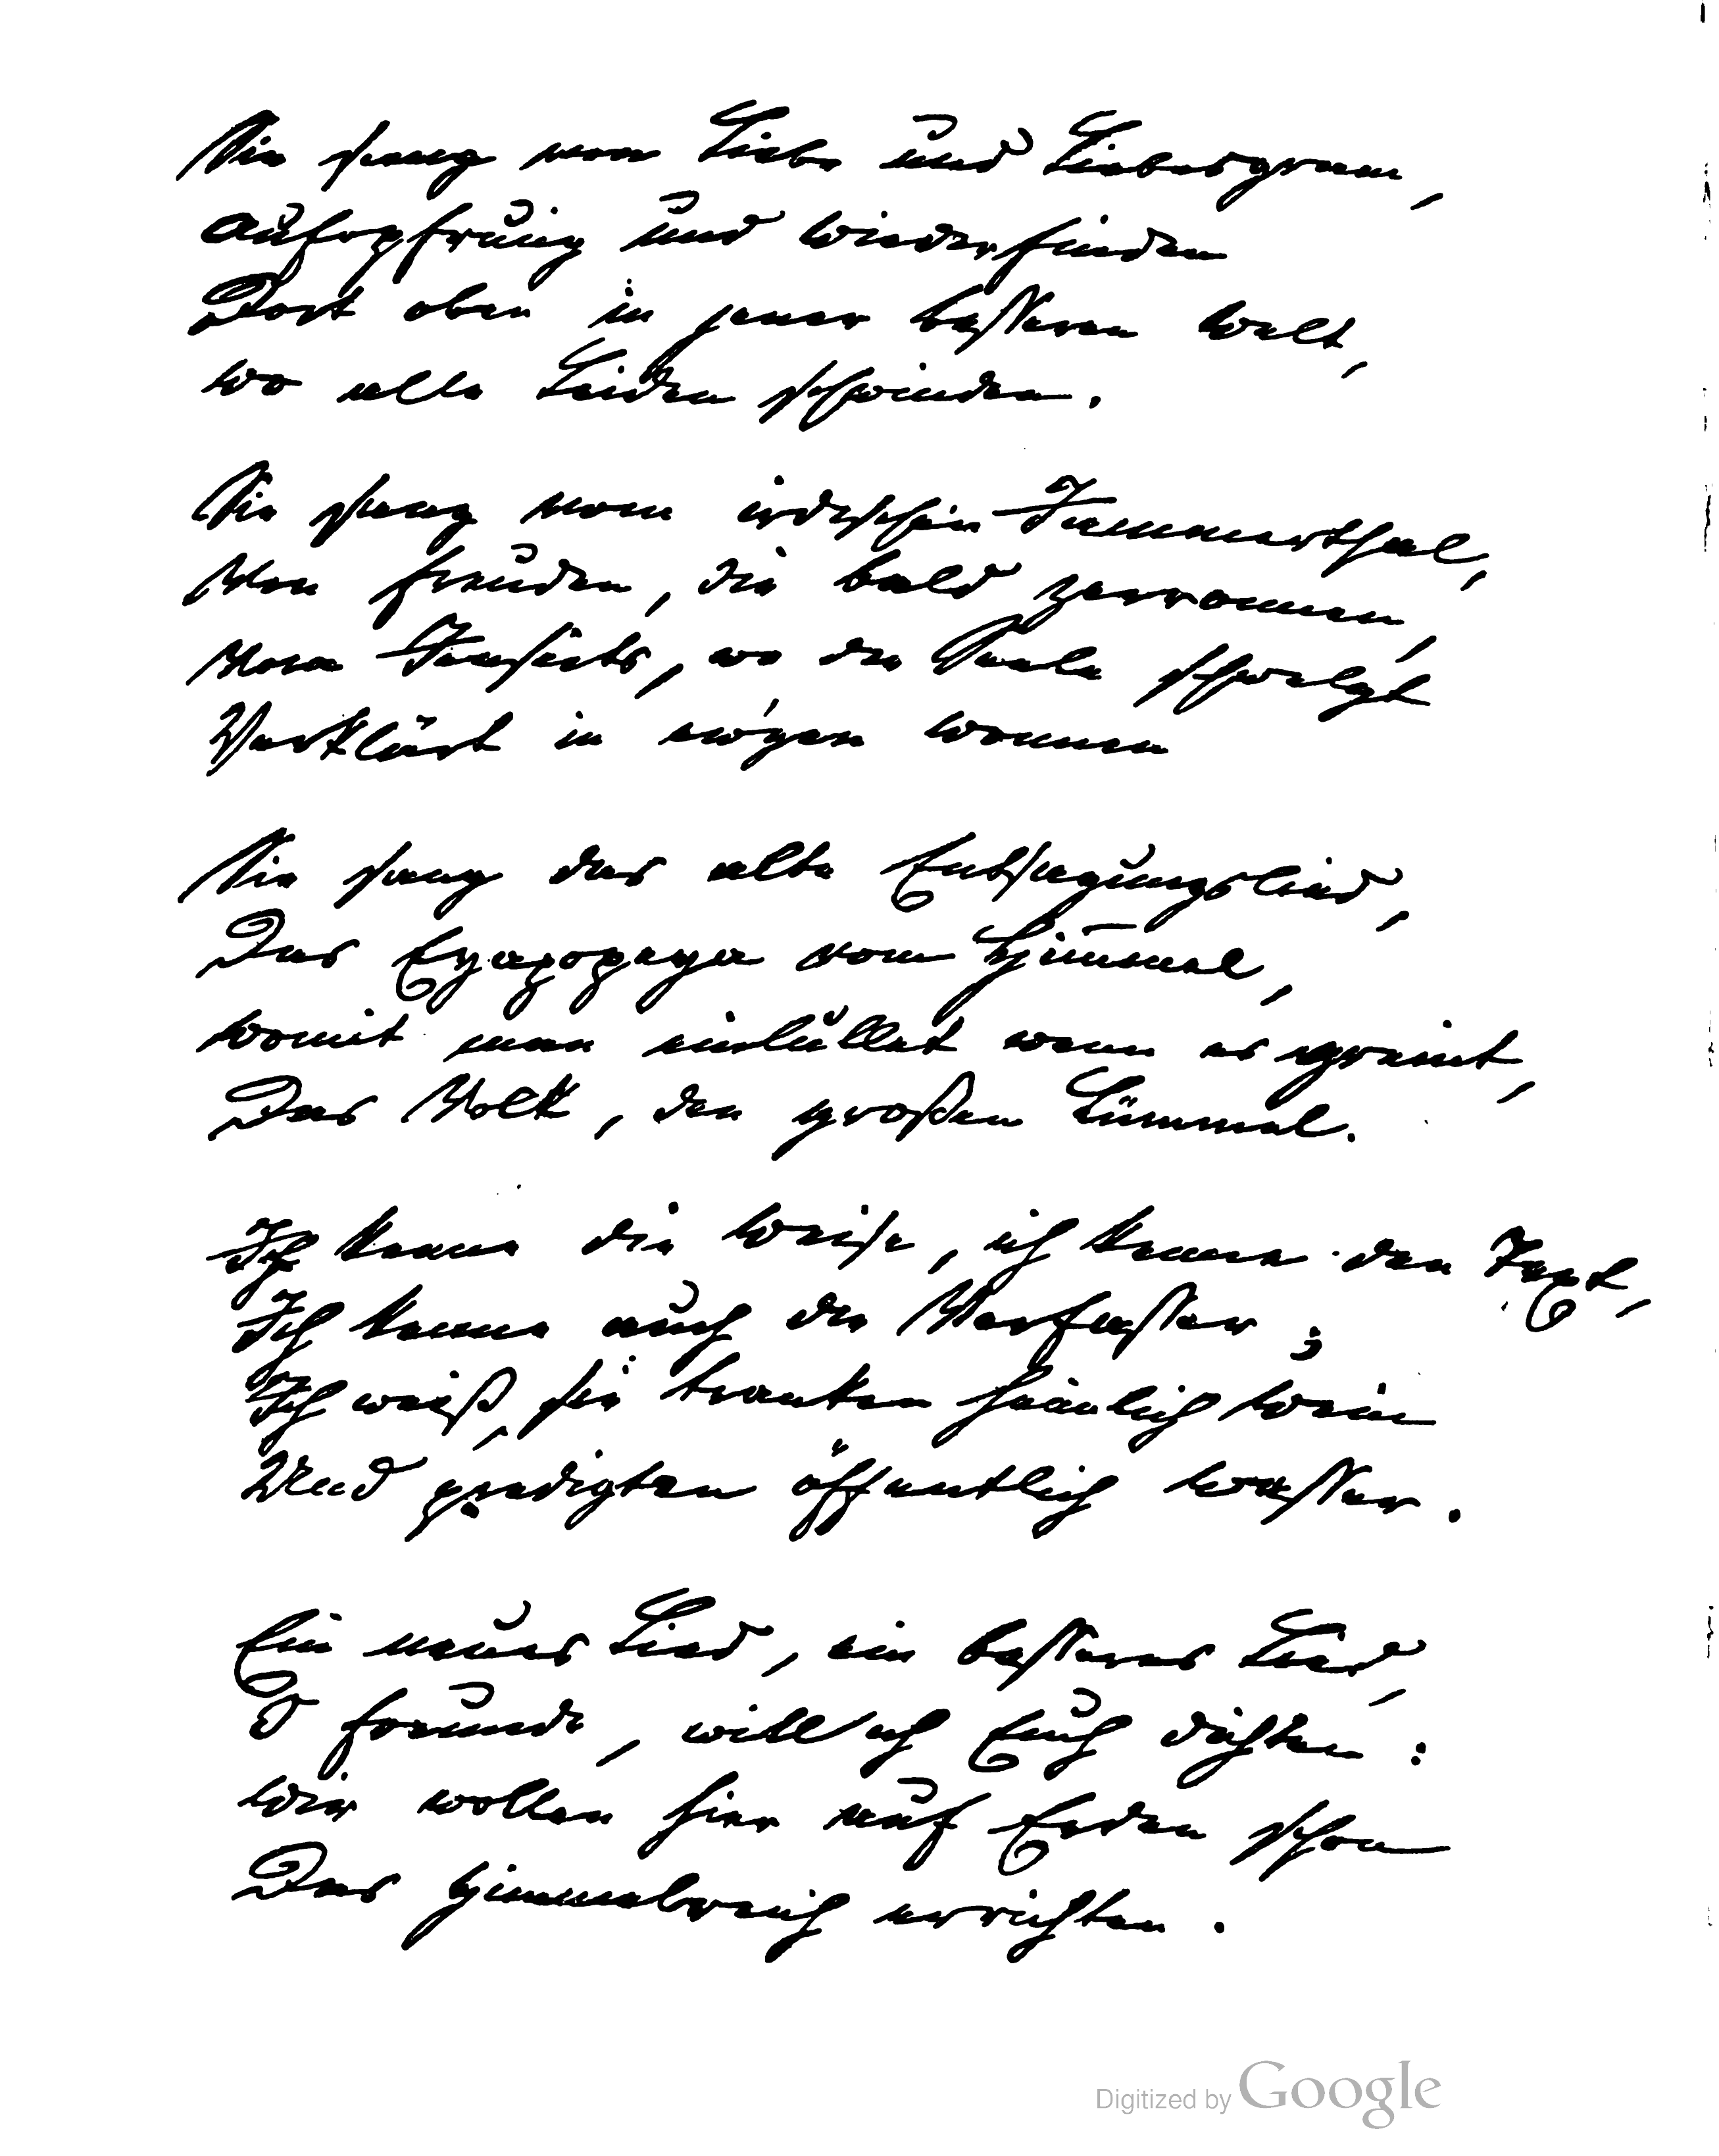 Sie sang von Liebe und Liebesgram,
Aufopfrung und Wiederfinden
Dort oben in jener besseren Welt,
Wo alle Leiden schwinden.
Sie sang vom irdischen Jammerthal,
Von Freuden, die bald zerronnen,
Vom Jenseits, wo die Seele schwelgt
Verklärt in ew'gen Wonnen
Sie sang das alte Entsagungslied,
Das Eyapopeya vom Himmel,
Womit man einlullet wenn es greint,
Das Volk, den großen Lümmel.
Ich kenne die Weise, ich kenne den Text,
Ich kenne auch die Verfasser;
Ich weiß, sie tranken heimlich Wein
Und predigten öffentlich Wasser.
Ein neues Lied, ein besseres Lied,
O Freunde, will ich Euch dichten:
Wir wollen hier auf Erden schon
Das Himmelreich errichten.
Digitized by Google